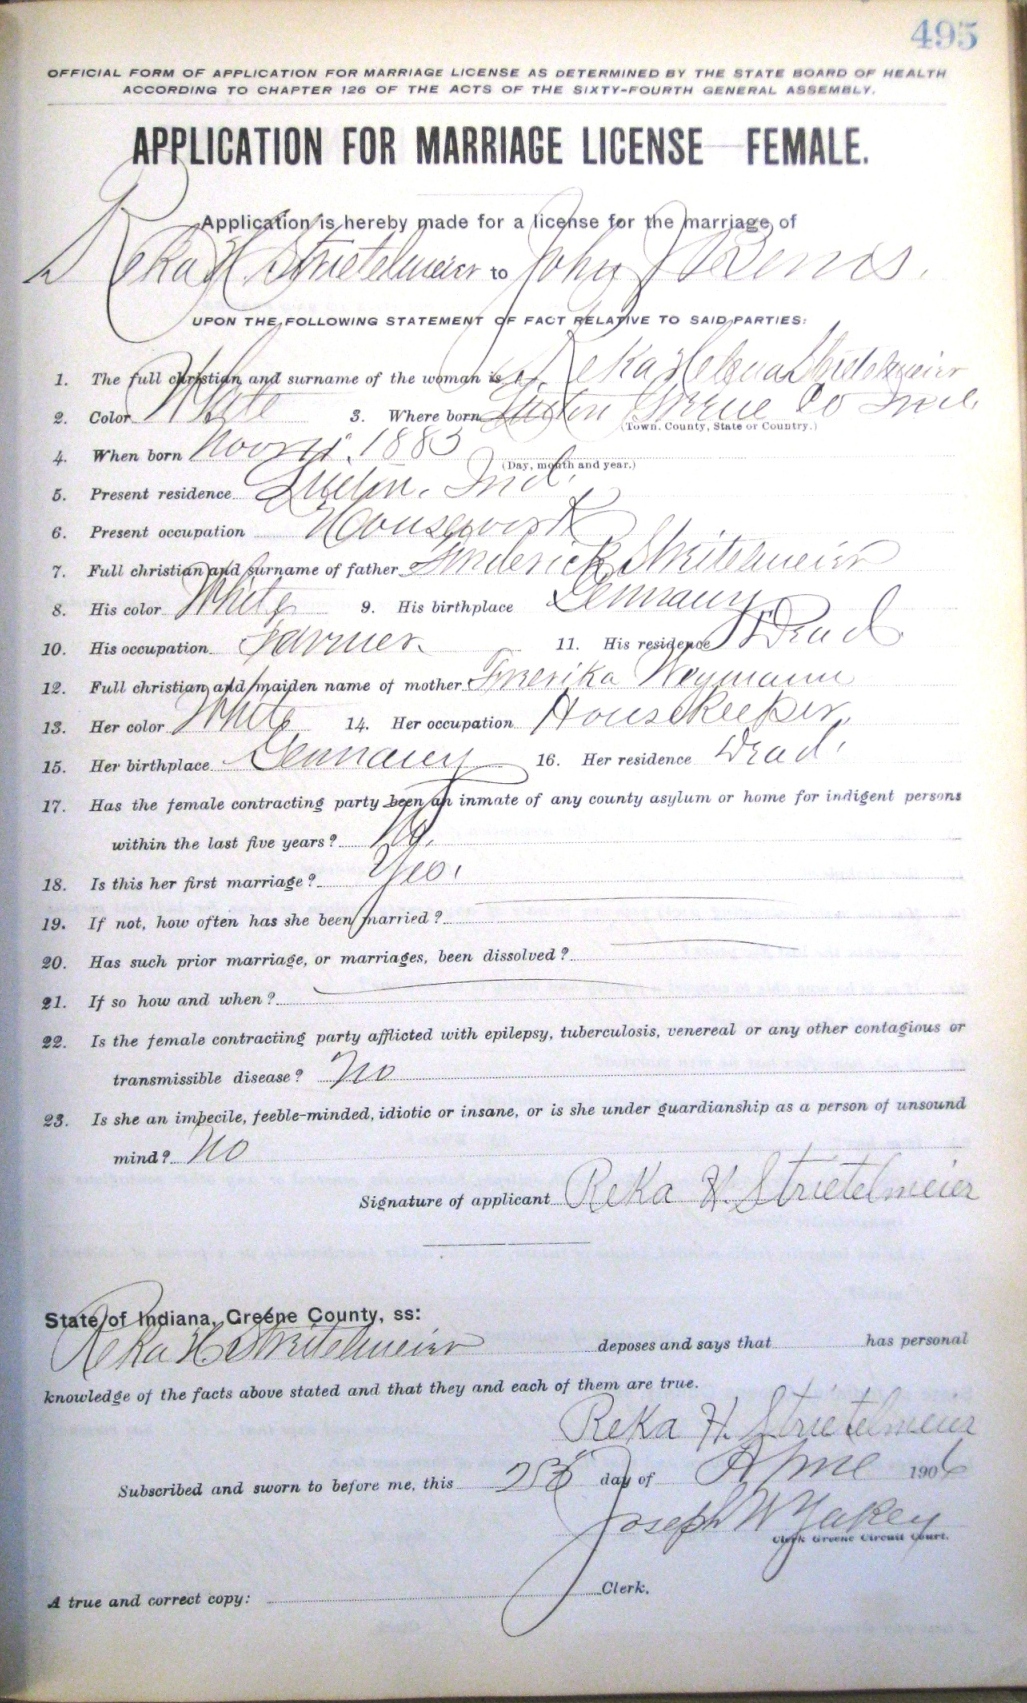 495
OFFICIAL FORM OF APPLICATION FOR MARRIAGE LICENSE AS DETERMINED BY THE STATE BOARD OF HEALTH
ACCORDING TO CHAPTER 126 OF THE ACTS OF THE SIXTY-FOURTH GENERAL ASSEMBLY.
APPLICATION FOR MARRIAGE LICENSE FEMALE.
Application is hereby made for a license for the marriage of
Reka H Strietelmeier to John J
UPON THE FOLLOWING STATEMENT OF FACT RELATIVE TO SAID PARTIES:
1. The full christian and surname of the woman is Reka Helena Strietelmeier
2. Color White 3. Where born Greene Co Ind.
(Town, County, State or Country.)
4. When born 1883
(Day, month and year.)
5. Present residence Ind.
6. Present occupation Housework
7. Full christian and surname of father Frederick Strietelmeier
8. His color White 9. His birthplace Germany
10. His occupation Farmer. 11. His residence Dead
12. Full christian and maiden name of mother Weymann
13. Her color White 14. Her occupation Housekeeper.
15. Her birthplace Germany 16. Her residence Dead.
17. Has the female contracting party been an inmate of any county asylum or home for indigent persons
within the last five years? No.
18. Is this her first marriage? Yes.
19. If not, how often has she been married?
20. Has such prior marriage, or marriages, been dissolved?
21. If so how and when?
22. Is the female contracting party afflicted with epilepsy, tuberculosis, venereal or any other contagious or
transmissible disease? No
23. Is she an imbecile, feeble-minded, idiotic or insane, or is she under guardianship as a person of unsound
mind? No
Signature of applicant Reka H. Strietelmeier
State of Indiana, Greene County, ss:
Reka H. Strietelmeier deposes and says that has personal
knowledge of the facts above stated and that they and each of them are true.
Reka H. Strietelmeier
Subscribed and sworn to before me, this day of 1906
Joseph W Yakey
Clerk Greene Circuit Court.
A true and correct copy: Clerk.